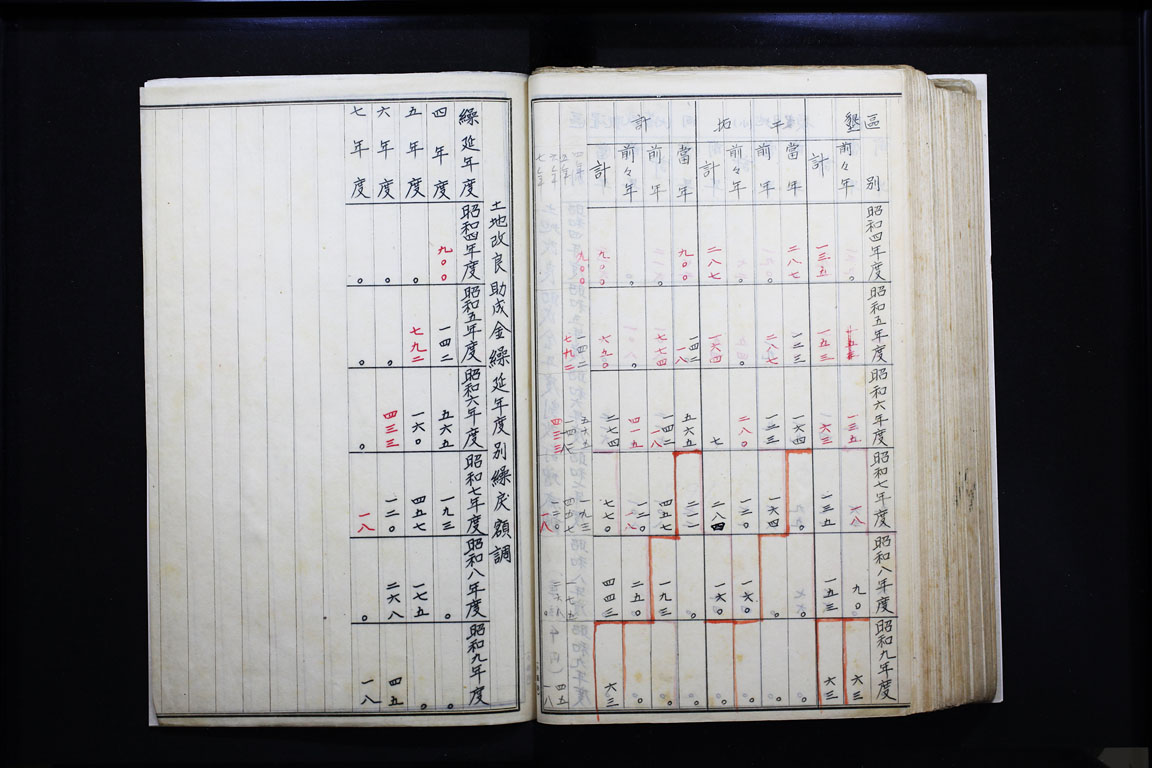 區別 昭和四年度 昭和五年度 昭和六年度 昭和七年度 昭和八年度 昭和九年度
墾 前々年 〇 一三五 一八 九〇 六三
計 一三五 一五三 一六三 一三五 一五三 六三
干 當年 二八七 一二三 一六四 〇 〇
前年 二八七 一二三 一六四 〇 〇
前々年 〇 二八〇 一二〇 一六〇 〇
拓 計 二八七 一六四 七 二八四 一六〇 〇
當年 九〇〇 一四二 一八 五六五 二一一 〇 〇
前年 七七四 一四二 一八 四五七 一九三 〇
計 前々年 〇 〇 四一五 一二〇 一八 二五〇 〇
計 九〇〇 六九〇 二七四 七七〇 四四三 六三
土地改良助成金繰延年度別繰戻額調
繰延年度 昭和四年度 昭和五年度 昭和六年度 昭和七年度 昭和八年度 昭和九年度
四年度 九〇〇 一四二 五六五 一九三 〇 〇
五年度 〇 七九二 一六〇 四五七 一七五 〇
六年度 〇 〇 四三三 一二〇 二六八 四五
七年度 〇 〇 〇 一八 〇 一八